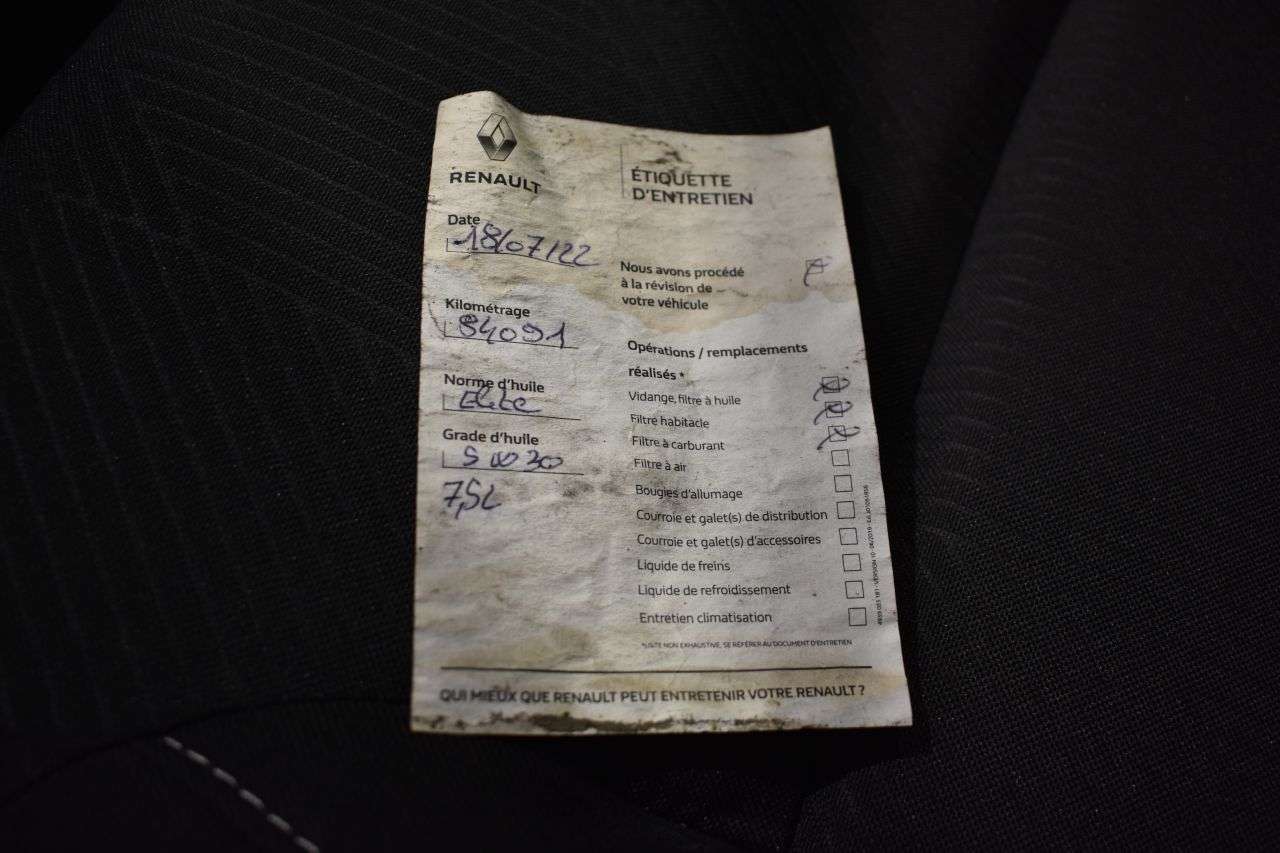 RENAULT
ÉTIQUETTE
D'ENTRETIEN
Date
18/07/22
Kilométrage
84091
Norme d'huile
Grade d'huile
5W30
7,5L
Nous avons procédé
à la révision de
votre véhicule
Opérations / remplacements
réalisés *
Vidange, filtre à huile
Filtre habitacle
Filtre à carburant
Filtre à air
Bougies d'allumage
Courroie et galet(s) de distribution
Courroie et galet(s) d'accessoires
Liquide de freins
Liquide de refroidissement
Entretien climatisation
*LISTE NON EXHAUSTIVE, SE RÉFÉRER AU DOCUMENT D'ENTRETIEN
QUI MIEUX QUE RENAULT PEUT ENTRETENIR VOTRE RENAULT ?